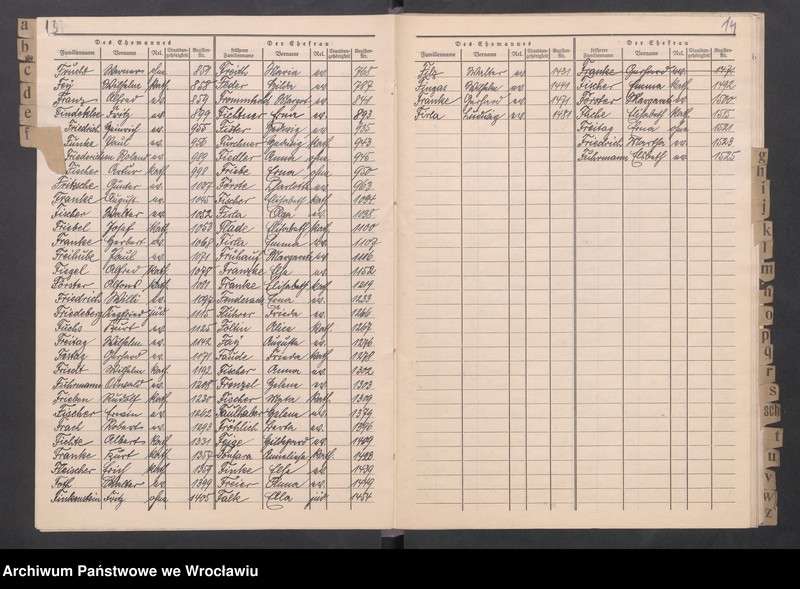 13
Des Ehemannes Der Ehefrau
Familienname Vorname Rel. Staatsangehörigkeit Register-Nr. früherer Familienname Vorname Rel. Staatsangehörigkeit Register-Nr.
Werner 851 Freith Maria ev. 765
Fey Wilhelm kath. 858 Feder Hilda ev. 787
Franz Alfred ev. 859 Frommhold Margot ev. 841
Findeklee Fritz ev. 899 Fichtner Erna ev. 893
Friedrich Heinrich ev. 955 Hedwig ev. 935
Funke Paul ev. 956 Hedwig kath. 943
Roland ev. 989 Fiedler Anna ev. 946
Fischer Artur kath. 998 Friebe Erna ohne 950
Fritsche Günter ev. 1007 Förste Charlotte ev. 963
Franke August ev. 1045 Fischer Elisabeth kath. 1084
Fischer Walter ev. 1052 Firla Olga ev. 1098
Friebel Josef kath. 1053 Elisabeth kath. 1100
Franke Herbert ev. 1068 Firla Emma ev. 1107
Freihube Paul ev. 1071 Frühauf Margarete ev. 1116
Alfred kath. 1078 Franzke Else ev. 1152
Förster Alfons kath. 1081 Franke Elisabeth kath. 1219
Friedrich Willi ev. 1097 Erna ev. 1233
Friedeberg Siegfried jüd. 1115 Führer Frieda ev. 1266
Fuchs Kurt ev. 1125 Foltin Alice kath. 1267
Freitag Wilhelm ev. 1142 Fay Augusta ev. 1276
Freitag Gerhard ev. 1171 Frieda kath. 1278
Friedt Wilhelm kath. 1192 Fischer Anna ev. 1302
Fuhrmann Oswald ev. 1208 Frenzel Helene ev. 1303
Frieben Rudolf kath. 1230 Fischer kath. 1319
Fischer Erwin ev. 1262 Faulhaber Helene ev. 1379
Frach Robert ev. 1293 Fröhlich Herta ev. 1396
Fichte Albert kath. 1331 Feige Hildegard ev. 1409
Franke Kurt kath. 1357 Annaliese kath. 1423
Fleischer Erich kath. 1359 Finke Else ev. 1439
Foth Walter ev. 1399 Freier Anna ev. 1449
Finkenstein Fritz ohne 1405 Falk Ella jüd. 1454
14
Des Ehemannes Der Ehefrau
Familienname Vorname Rel. Staatsangehörigkeit Register-Nr. früherer Familienname Vorname Rel. Staatsangehörigkeit Register-Nr.
Filz Walter ev. 1431 Franke Gerhard ev. 1471
Fingas Wilhelm ev. 1441 Fischer Emma kath. 1492
Franke Gerhard ev. 1471 Förster Margarete kath. 1500
Firla ev. 1481 Elisabeth kath. 1515
Freitag Erna ohne 1521
Friedrich Martha ev. 1523
Fuhrmann Elsbeth ev. 1525
a
b
c
d
e
f
g
h
i
j
k
l
m
n
o
p
q
r
s
sch
t
u
v
w
z
Archiwum Państwowe we Wrocławiu